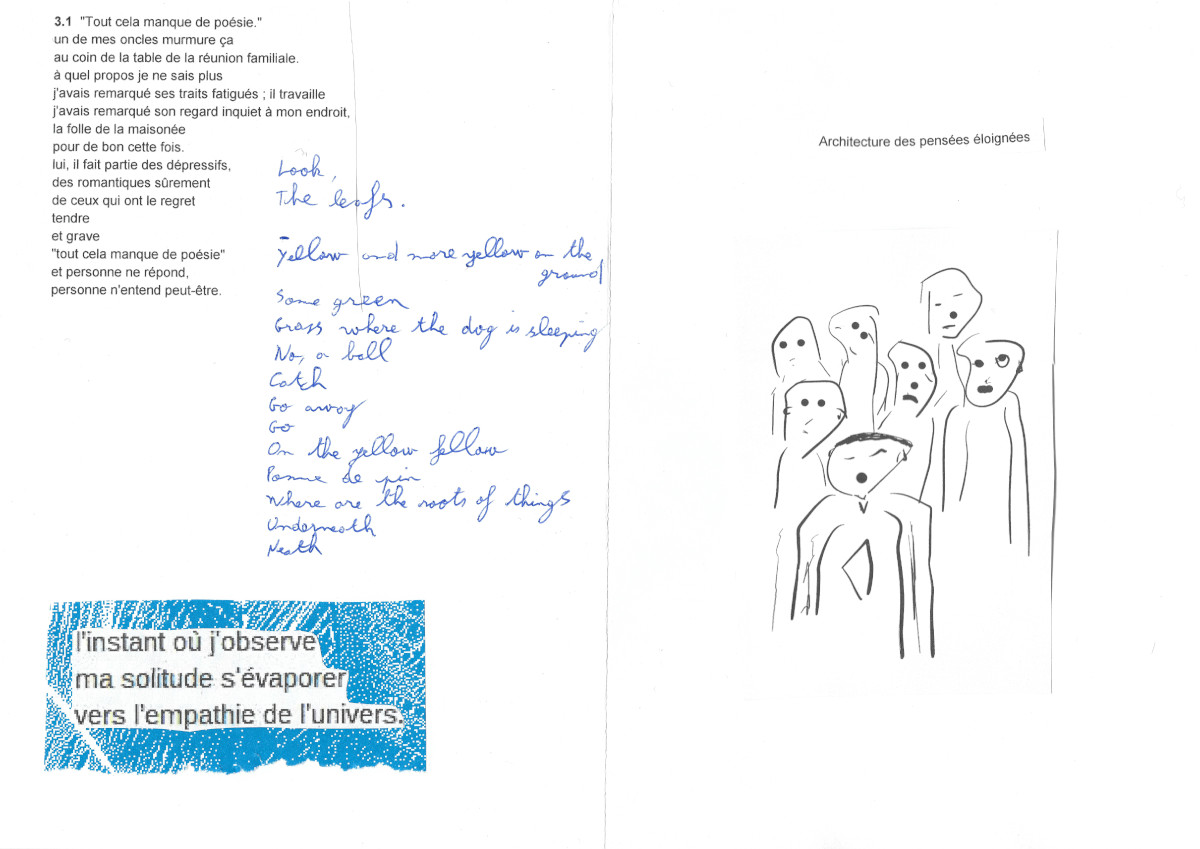 3.1 "Tout cela manque de poésie."
un de mes oncles murmure ça
au coin de la table de la réunion familiale.
à quel propos je ne sais plus
j'avais remarqué ses traits fatigués ; il travaille
j'avais remarqué son regard inquiet à mon endroit,
la folle de la maisonée
pour de bon cette fois.
lui, il fait partie des dépressifs,
des romantiques sûrement
de ceux qui ont le regret
tendre
et grave
"tout cela manque de poésie"
et personne ne répond,
personne n'entend peut-être.
Look,
The leafs.
Yellow and more yellow on the
ground
Some green
Grass where the dog is sleeping
No, a ball
Catch
Go away
Go
On the yellow fellow
Pomme de pin
Where are the roots of things
Underneath
Neath
l'instant où j'observe
ma solitude s'évaporer
vers l'empathie de l'univers.
Architecture des pensées éloignées